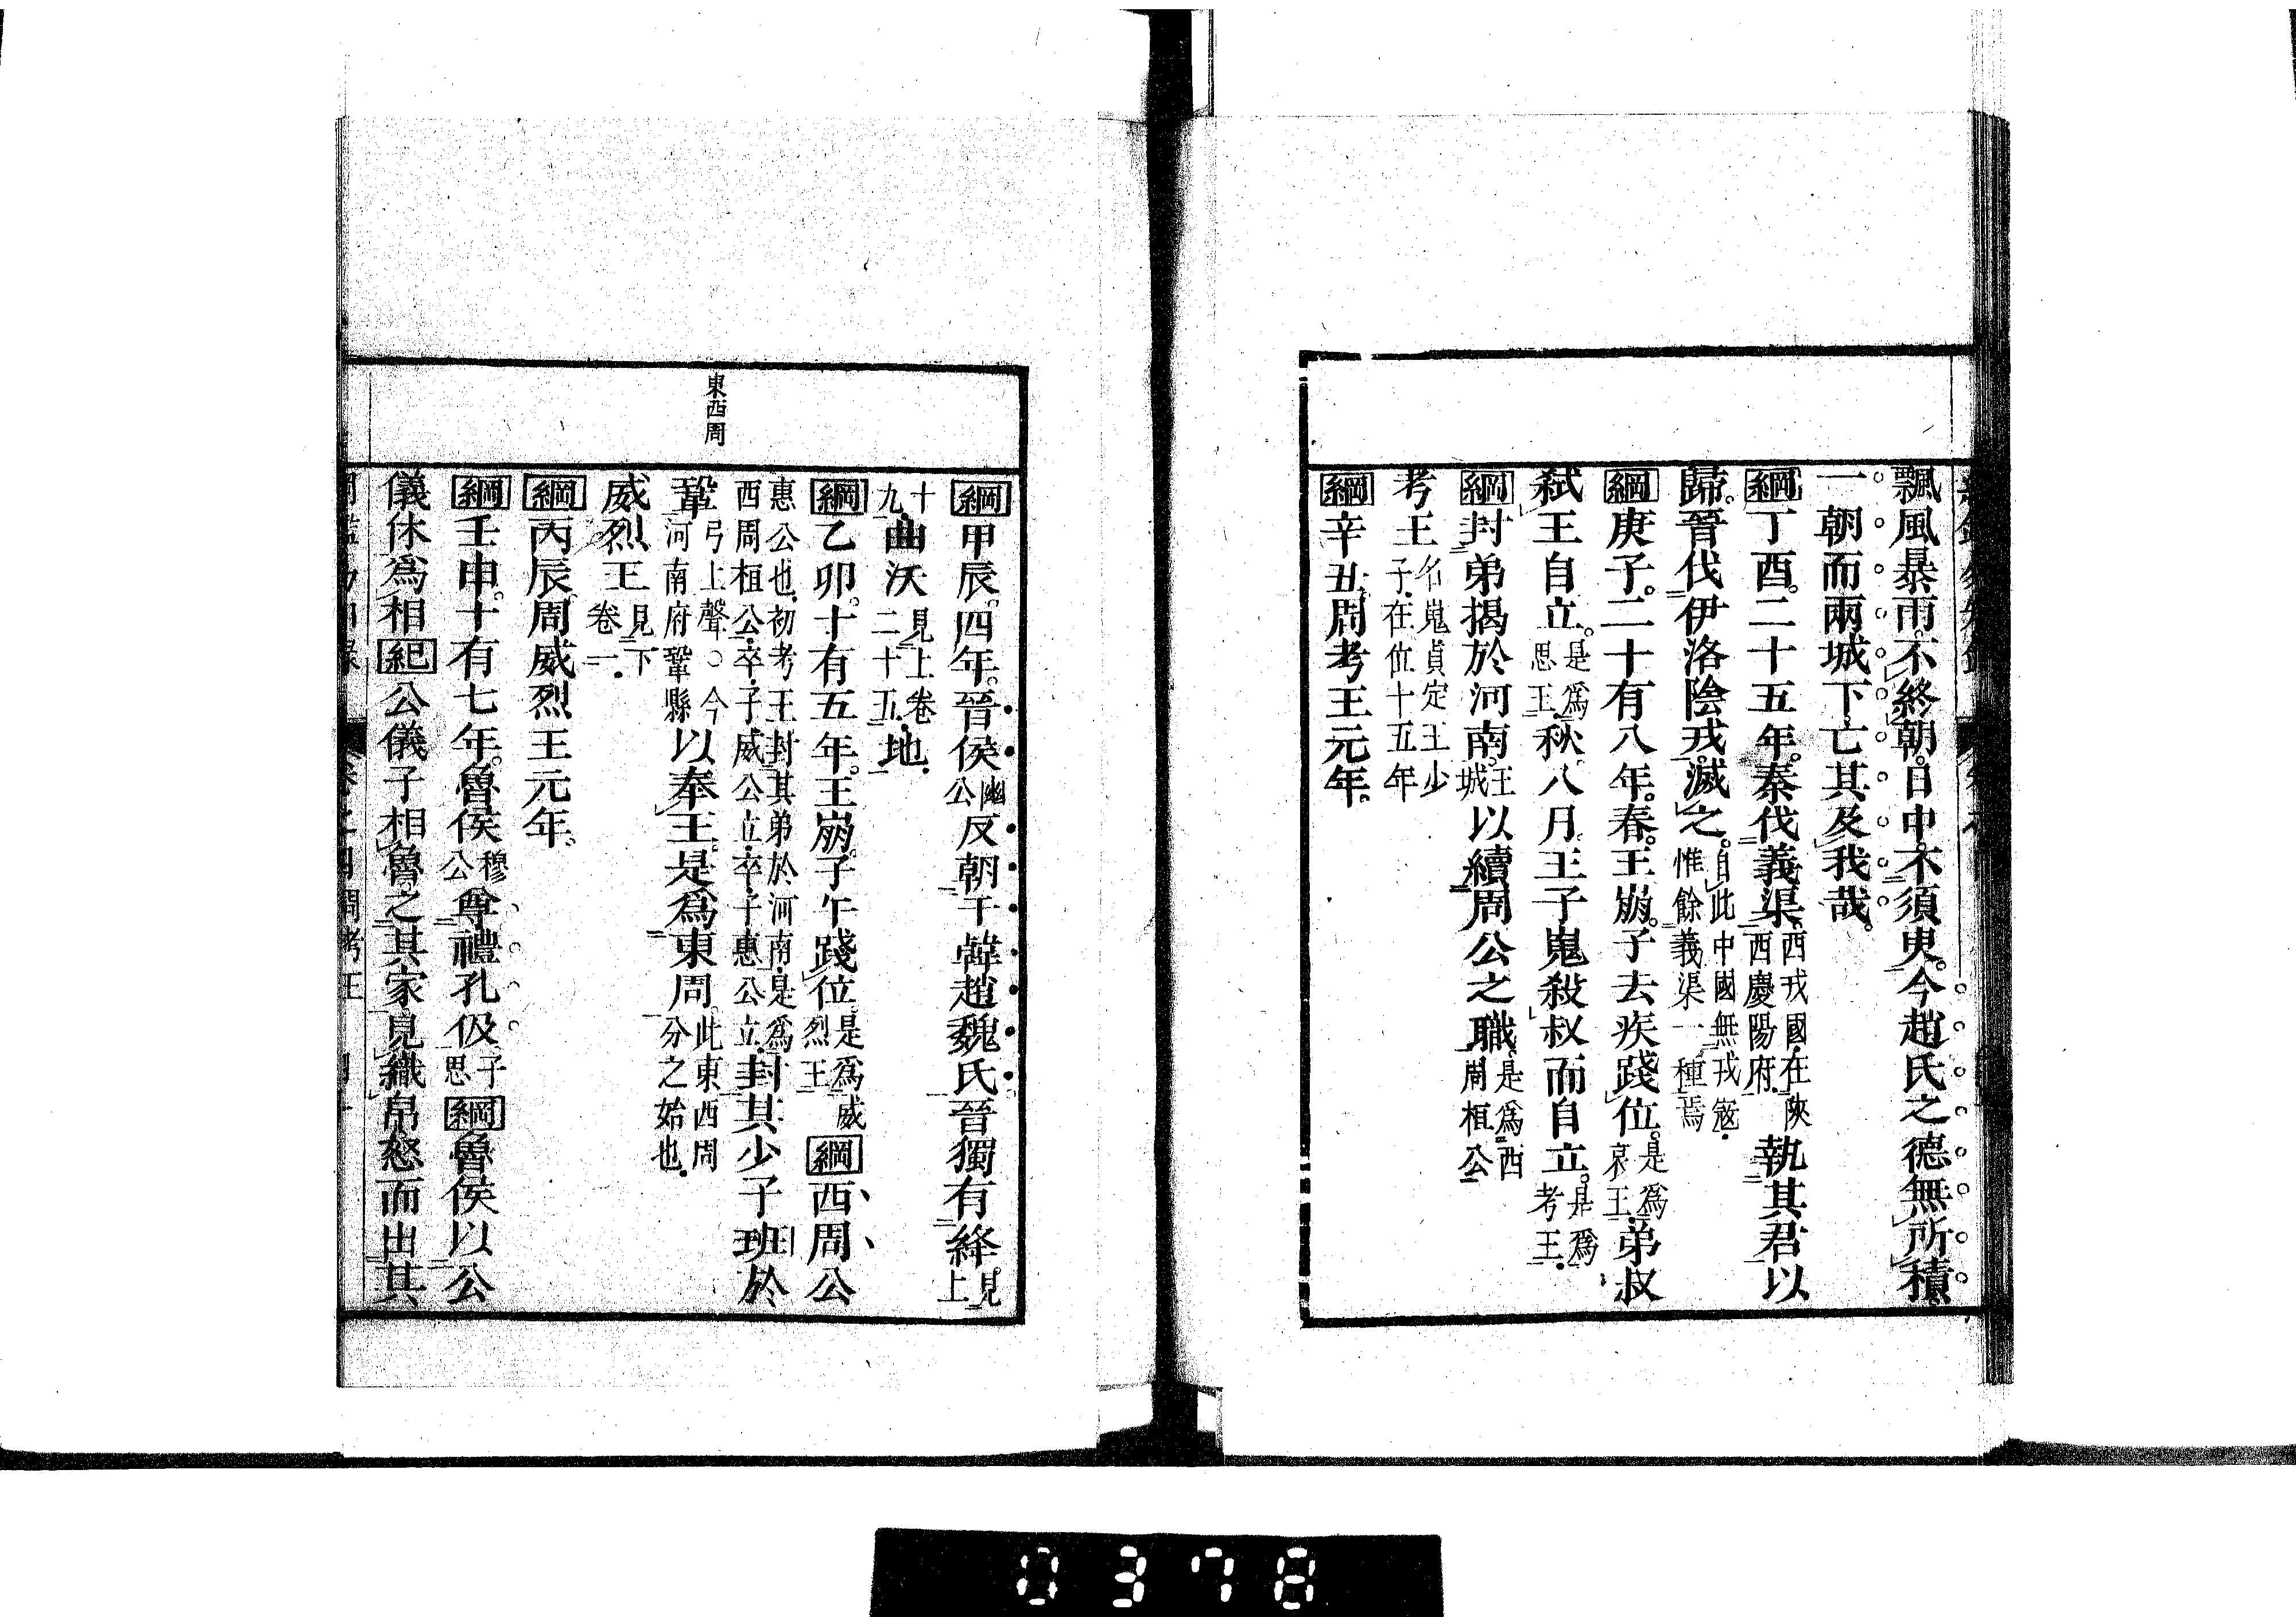 飄風暴雨。不終朝。日中不須臾。今趙氏之德無所積。
一朝而兩城下。亡其及我哉。
綱丁酉。二十五年。秦伐義渠。西戎國。在陝西慶陽府。執其君以
歸。晉伐伊洛陰戎。滅之。自此中國無戎寇。惟餘義渠一種焉
綱庚子。二十有八年。春。王崩。子去疾踐位。是爲哀王。弟叔
弑王自立。是爲思王。秋。八月。王子嵬殺叔而自立。是爲考王。
綱封弟揭於河南。王城以續周公之職。是爲西周桓公
考王名嵬貞定王少子。在位十五年
綱辛丑。周考王元年。
東西周
綱甲辰。四年。晉侯幽公反朝于韓趙魏氏。晉獨有絳。見上
十九曲沃見上卷二十五。地。
綱乙卯。十有五年。王崩。子午踐位。是爲威烈王綱西周公
惠公也。初考王封其弟於河南。是爲西周桓公。卒。子威公立。卒。子惠公立。封其少子班於
鞏弓上聲。○今河南府鞏縣以奉王。是爲東周。此東西周分之始也。
威烈王見下卷一。
綱丙辰。周威烈王元年。
綱壬申。十有七年。魯侯穆公尊禮孔伋。子思綱魯侯以公
儀休爲相紀公儀子相魯。之其家。見織帛。怒而出其